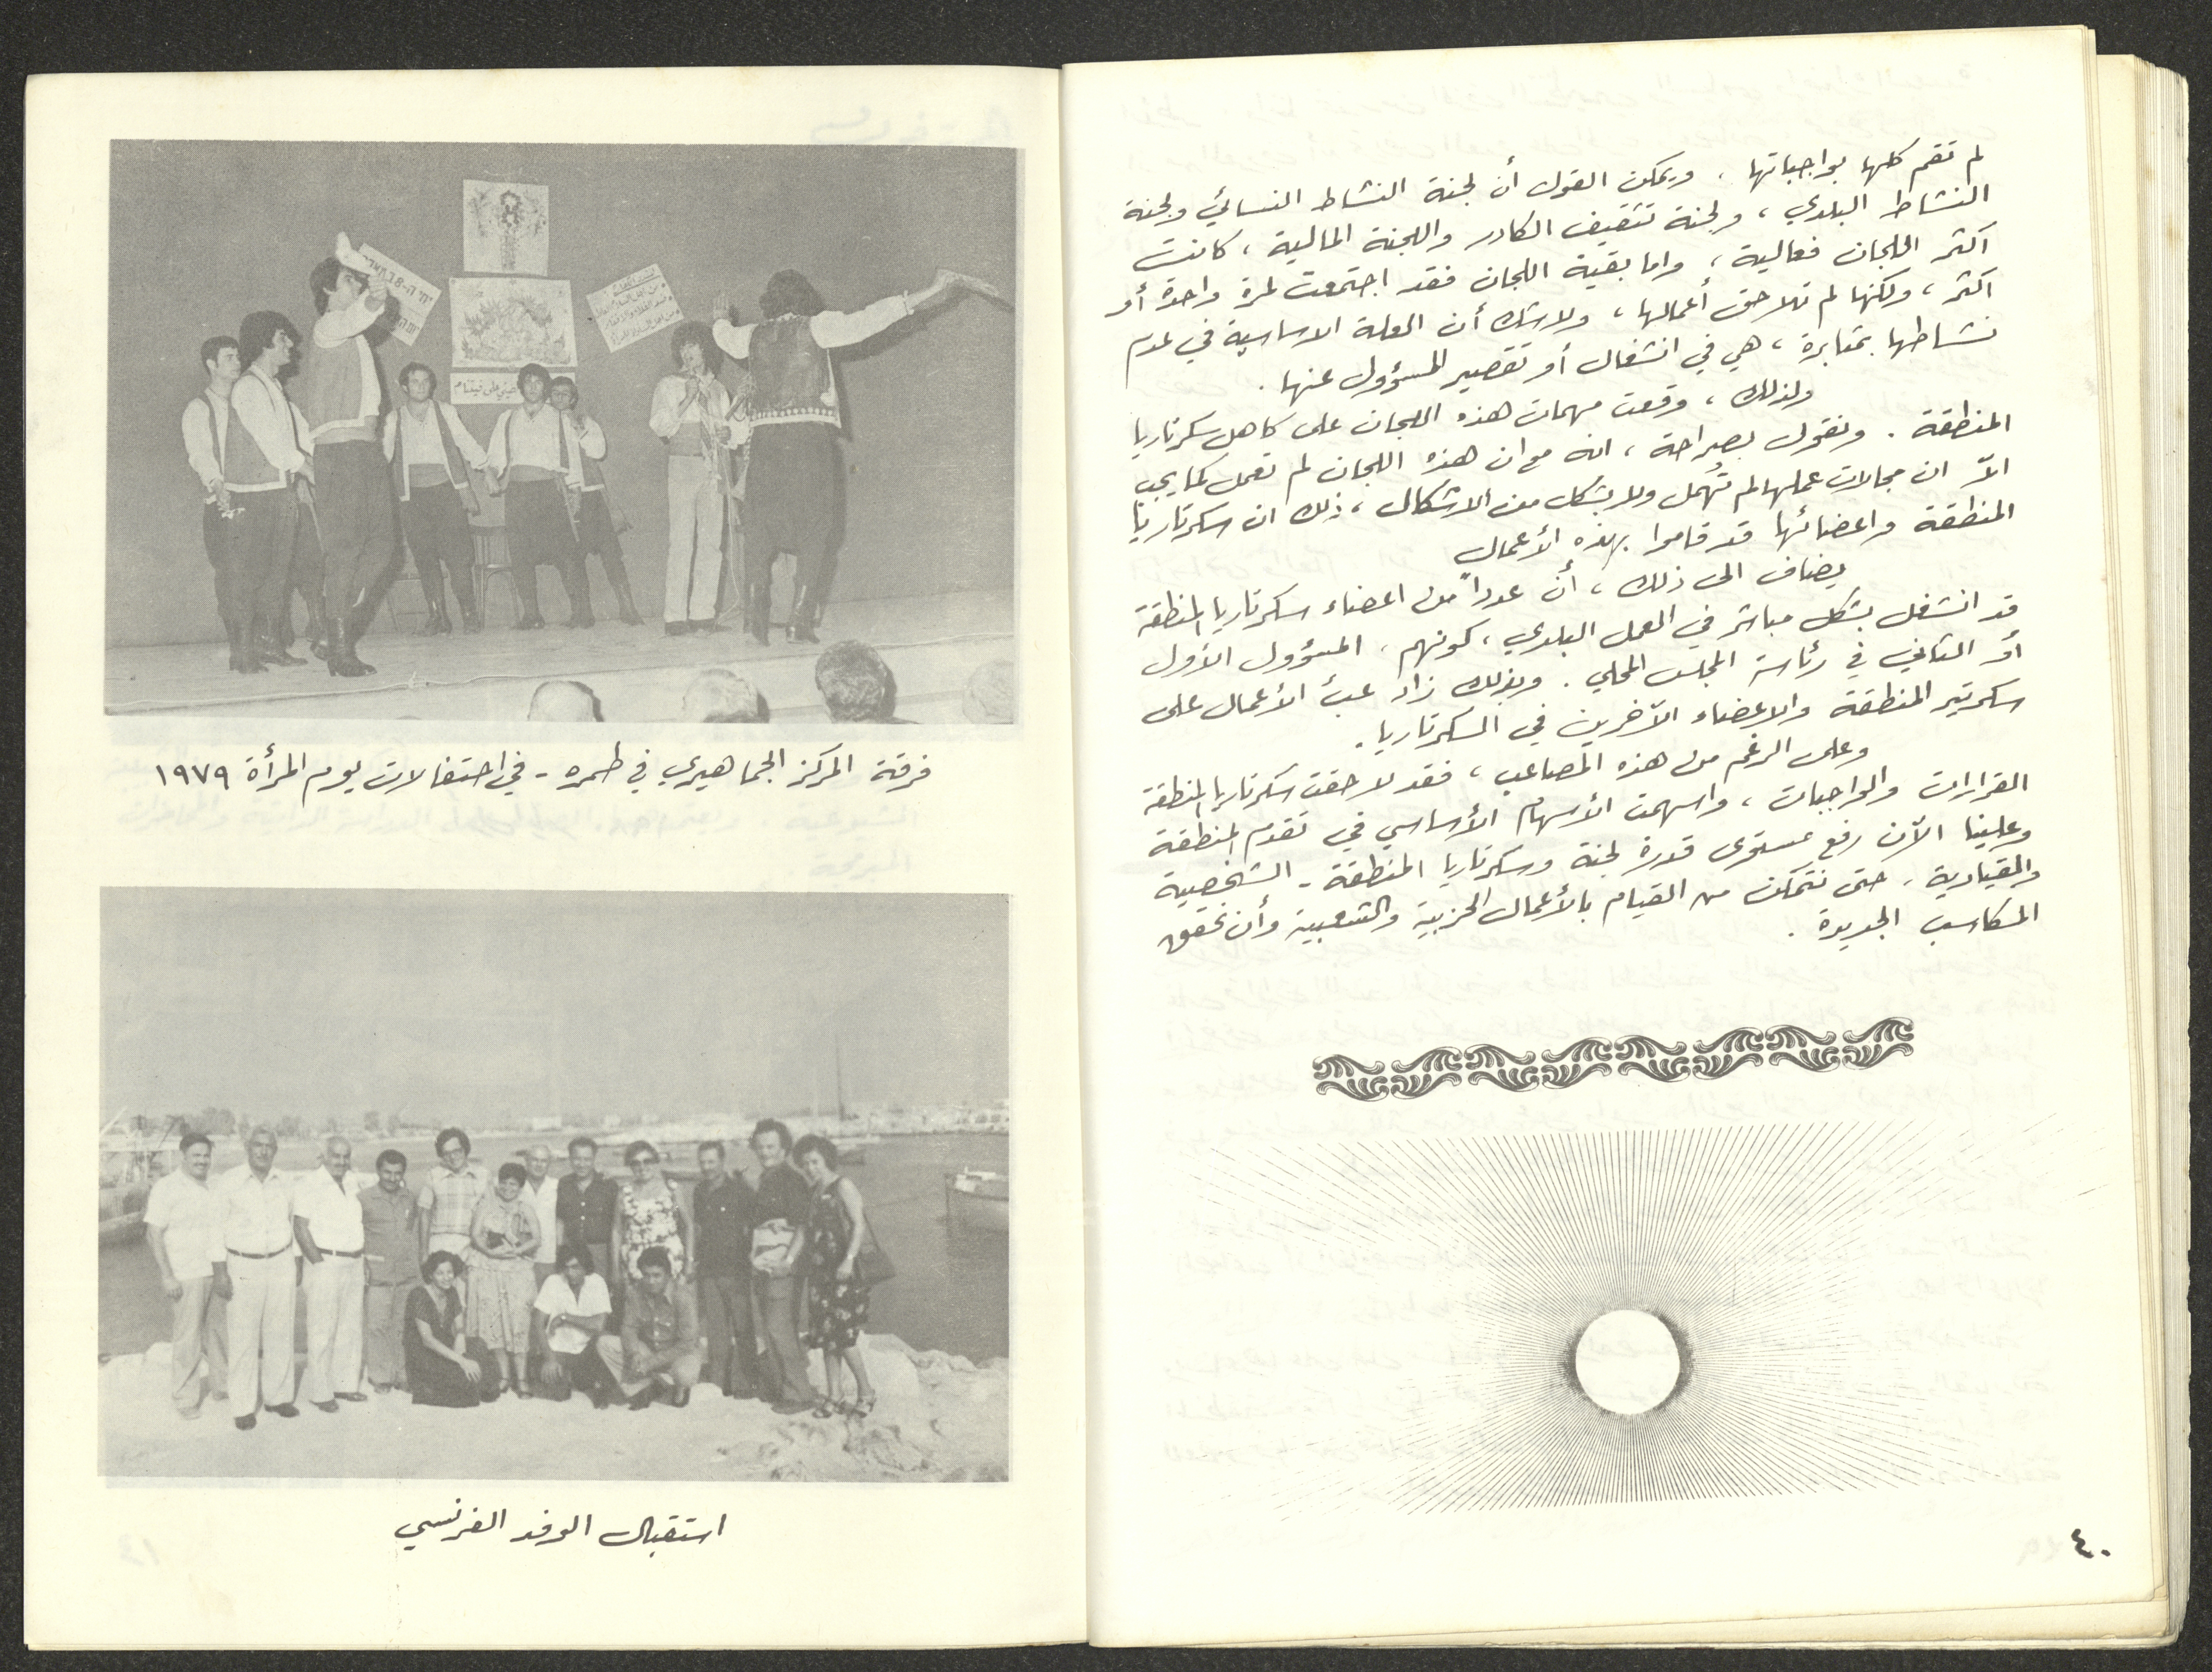 لم تقم كلها بواجباتها . ويمكن القول أن لجنة النشاط النسائي ولجنة
النشاط البلدي ، ولجنة تثقيف الكادر واللجنة المالية ، كانت
اكثر اللجان فعالية ، واما بقية اللجان فقد اجتمعت لمرة واحدة أو
اكثر ، ولكنها لم تلاحق أعمالها ، ولا شك أن العلة الاساسية في عدم
نشاطها بمثابرة ، هي في انشغال أو تقصير المسؤول عنها .
ولذلك ، وقعت مهمات هذه اللجان على كاهل سكرتاريا
المنطقة . ونقول بصراحة ، انه مع ان هذه اللجان لم تعمل كما يجب
الاّ ان مجالات عملها لم تُهمل ولا بشكل من الاشكال ، ذلك ان سكرتاريا
المنطقة واعضائها قد قاموا بهذه الأعمال
يضاف الى ذلك ، أن عدداً من اعضاء سكرتاريا المنطقة
قد انشغل بشكل مباشر في العمل البلدي ، كونهم ، المسؤول الأول
أو الثاني في رئاسة المجلس المحلي . وبذلك زاد عبأ الأعمال على
سكرتير المنطقة والاعضاء الآخرين في السكرتاريا .
وعلى الرغم من هذه المصاعب ، فقد لاحقت سكرتاريا المنطقة
القرارات والواجبات ، واسهمت الأسهام الأساسي في تقدم المنطقة
وعلينا الآن رفع مستوى قدرة لجنة وسكرتاريا المنطقة - الشخصية
والقيادية ، حتى نتمكن من القيام بالأعمال الحزبية والشعبية وأن نحقق
المكاسب الجديدة .
٤٠
فرقة المركز الجماهيري في طمره - في احتفالات يوم المرأة ١٩٧٩
استقبال الوفد الفرنسي